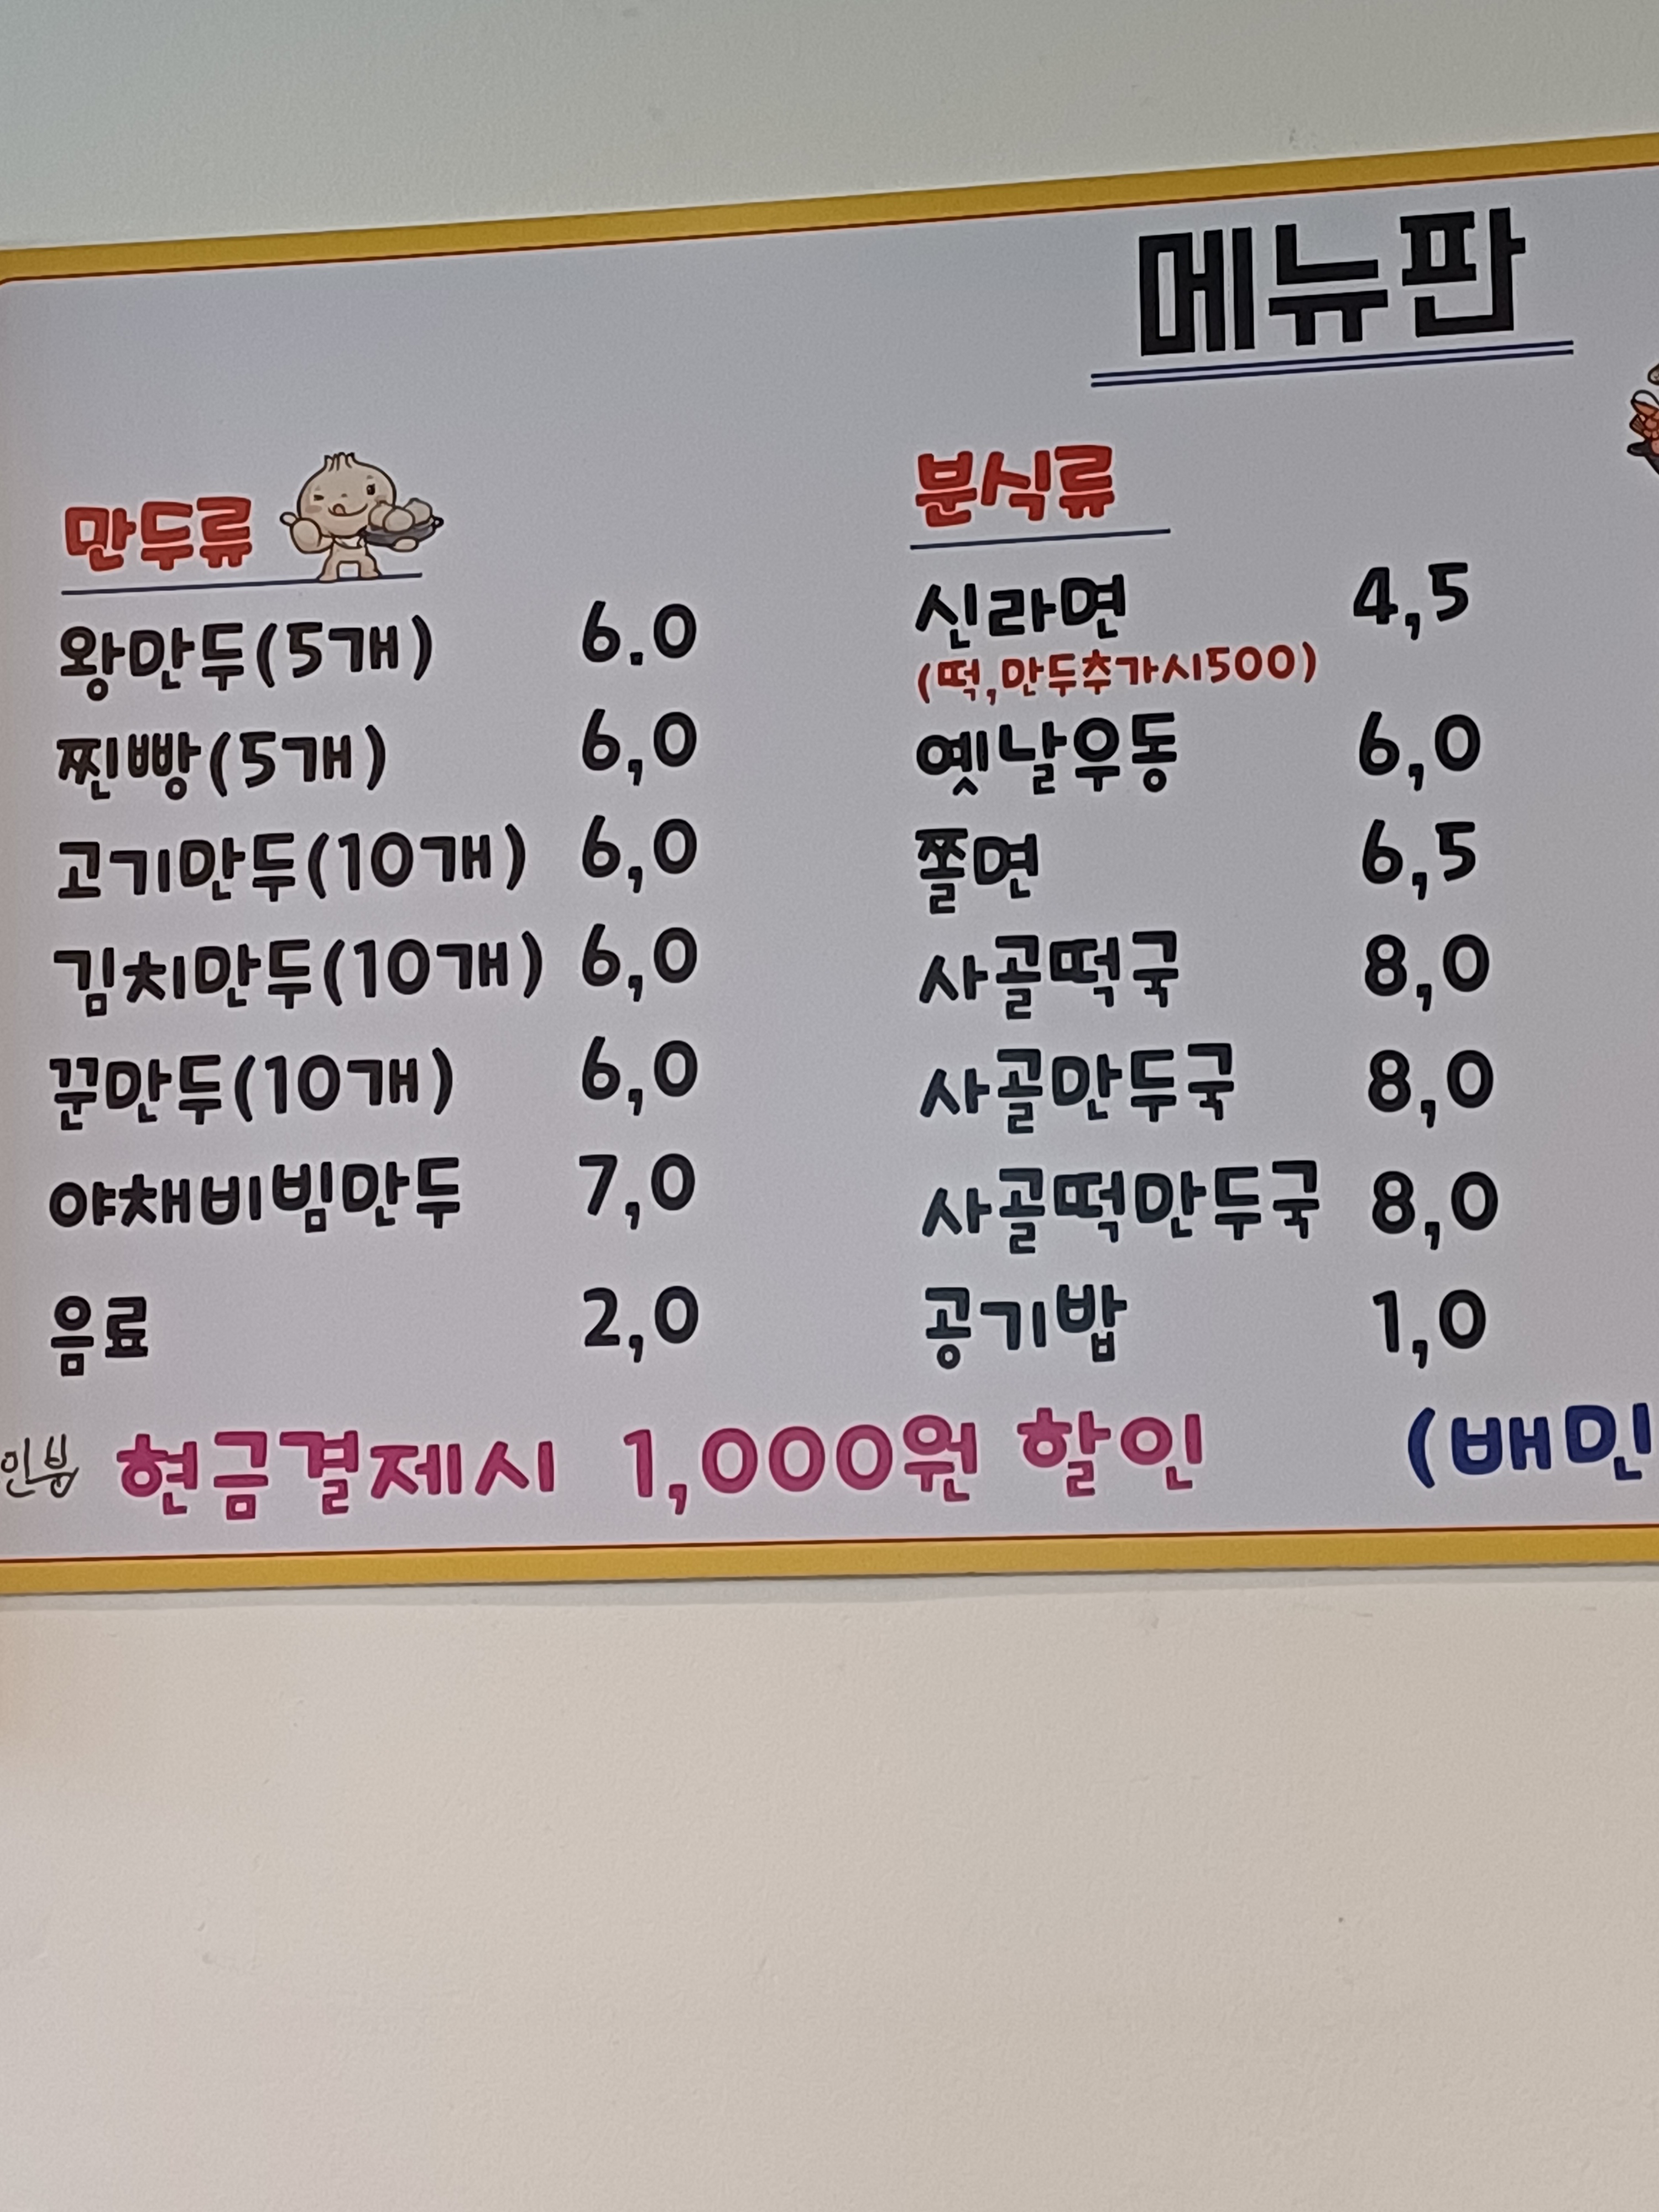 메뉴판
만두류
왕만두(5개) 6.0
찐빵(5개) 6,0
고기만두(10개) 6,0
김치만두(10개) 6,0
꾼만두(10개) 6,0
야채비빔만두 7,0
음료 2,0
분식류
신라면 4,5
(떡,만두추가시500)
옛날우동 6,0
쫄면 6,5
사골떡국 8,0
사골만두국 8,0
사골떡만두국 8,0
공기밥 1,0
현금결제시 1,000원 할인 (배민